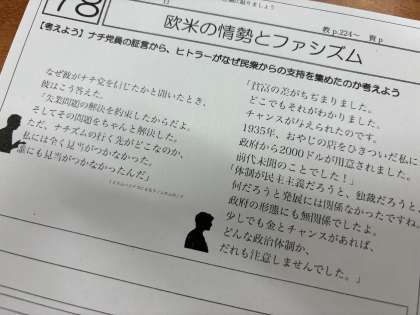 78
欧米の情勢とファシズム
教 p.224〜 資 p
【考えよう】ナチ党員の証言から、ヒトラーがなぜ民衆からの支持を集めたのか考えよう
なぜ彼がナチ党を信じたかと聞いたとき、
彼はこう答えた。
「失業問題の解決を約束したからだよ。
そしてその問題をちゃんと解決した。
ただ、ナチズムの行く先がどこなのか、
私には全く見当がつかなかった。
誰にも見当がつかなかったんだ」
「貧富の差がちぢまりました。
どこでもそれがわかりました。
チャンスが与えられたのです。
1935年、おやじの店をひきついだ私に
政府から2000ドルが用意されました。
前代未聞のことでした!」
「体制が民主主義だろうと、独裁だろうと、
何だろうと発展には関係なかったですね。
政府の形態にも無関係でしたよ。
少しでも金とチャンスがあれば、
どんな政治体制か、
だれも注意しませんでした。」